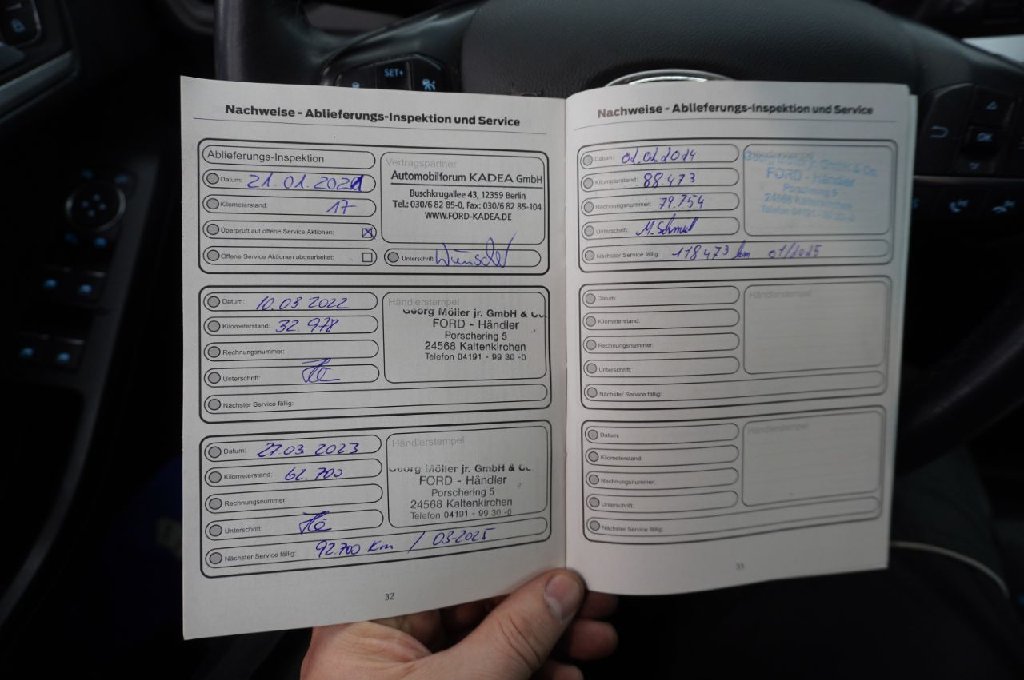 SET+
Nachweise - Ablieferungs-Inspektion und Service
Ablieferungs-Inspektion
Datum: 21.01.2021
Kilometerstand: 17
Überprüft auf offene Service Aktionen:
Offene Service Aktionen abgearbeitet:
Vertragspartner
Automobilforum KADEA GmbH
Buschkrugallee 43, 12359 Berlin
Tel.: 030/6 82 85-0, Fax: 030/6 82 85-104
WWW.FORD-KADEA.DE
Unterschrift:
Datum: 10.03 2022
Kilometerstand: 32.978
Rechnungsnummer:
Unterschrift:
Nächster Service fällig:
Händlerstempel
Georg Möller jr. GmbH & Co.
FORD - Händler
Porschering 5
24568 Kaltenkirchen
Telefon 04191 - 99 30 -0
Datum: 27.03 2023
Kilometerstand: 62.700
Rechnungsnummer
Unterschrift:
Nächster Service fällig: 92.700 Km / 03.2025
Händlerstempel
Georg Möller jr. GmbH & Co.
FORD - Händler
Porschering 5
24568 Kaltenkirchen
Telefon 04191 - 99 30 -0
32
Nachweise - Ablieferungs-Inspektion und Service
Datum:
Kilometerstand: 88.473
Rechnungsnummer: 79.754
Unterschrift:
Nächster Service fällig: 118.473 km 01/2025
FORD - Händler
Porschering 5
Datum:
Kilometerstand:
Rechnungsnummer:
Unterschrift:
Nächster Service fällig:
Händlerstempel
Datum:
Kilometerstand:
Rechnungsnummer:
Unterschrift:
Nächster Service fällig:
Händlerstempel
OK